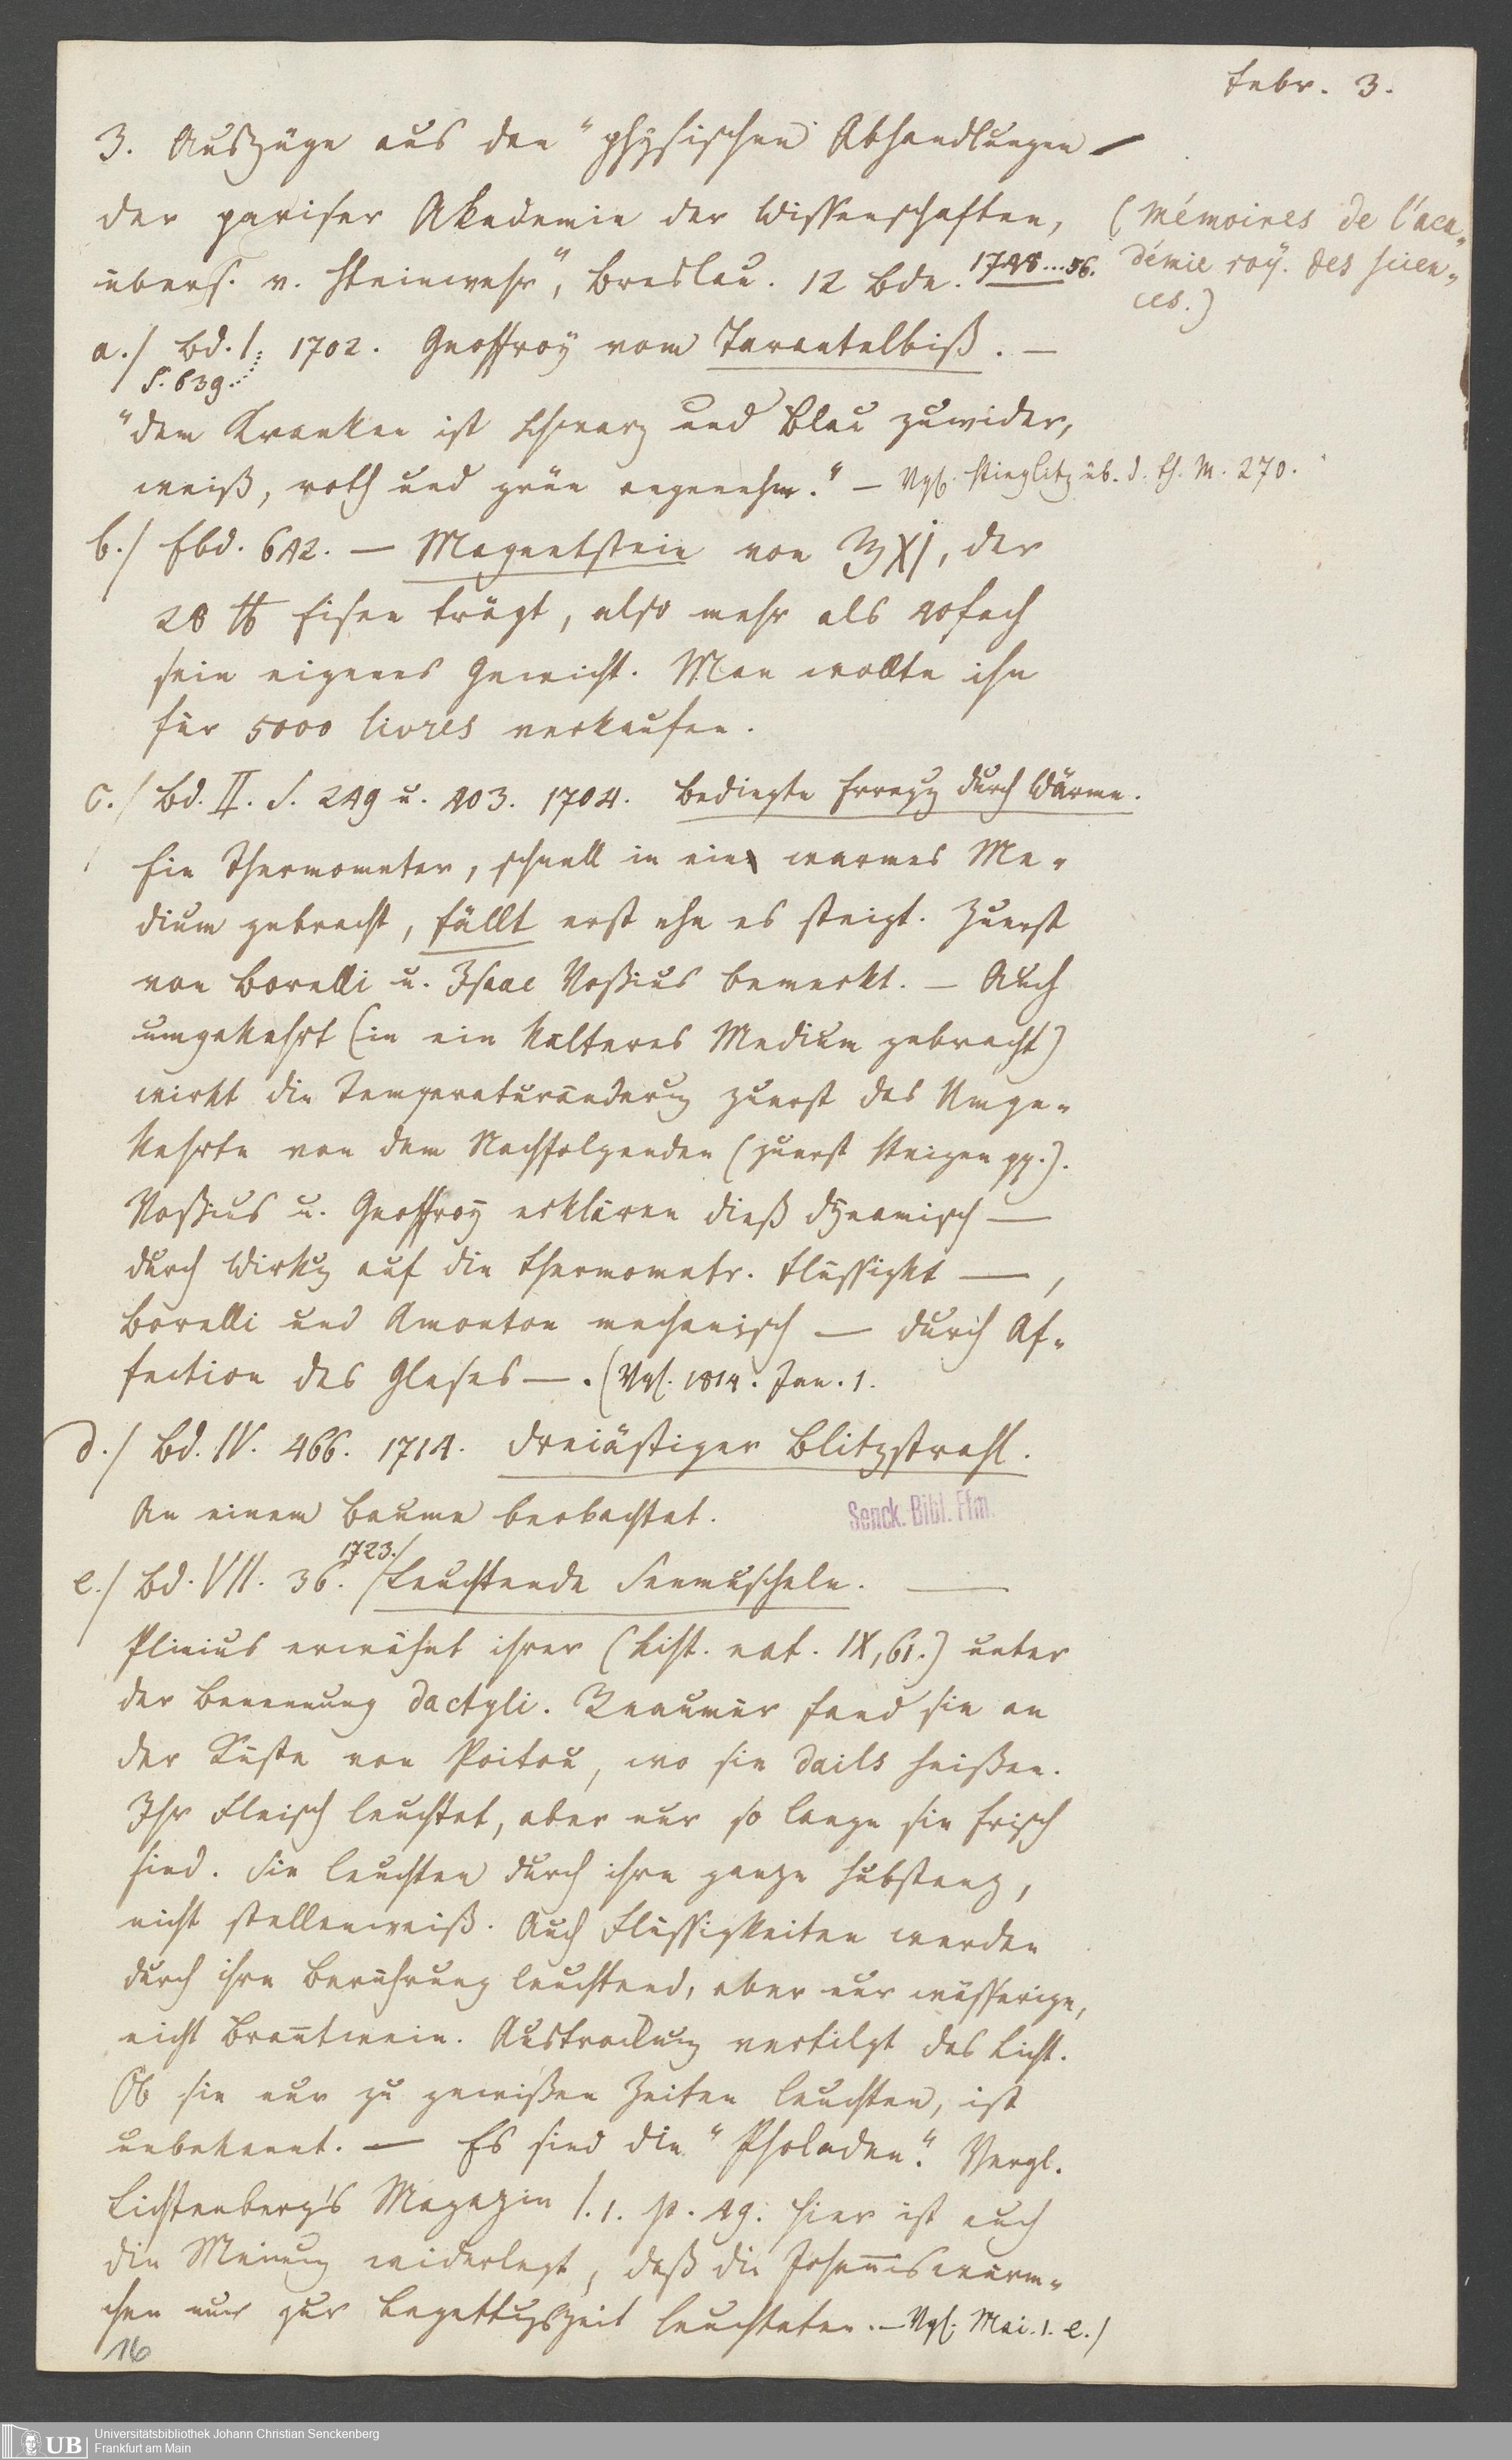 Febr. 3.
3. Auszüge aus den "physischen Abhandlungen
der pariser Akademie der Wissenschaften,
übers. v. Steinwehr", Breslau. 12 Bde. 1748...56.
(Mémoires de l'aca-
démie roÿ. des scien-
ces.)
a./ Bd. I. 1702. Geoffroÿ vom Tarantelbiß. —
S. 639.
"dem Kranken ist schwarz und blau zuwider,
weiß, roth und grün angenehm." — Vgl. Stieglitz üb. d. th. M. 270.
b./ Ebd. 642. — Magnetstein von ℥XI, der
28 ℔ Eisen trägt, also mehr als 40fach
sein eigenes Gewicht. Man wollte ihn
für 5000 livres verkaufen.
c./ Bd. II. S. 249 u. 403. 1704. Bedingte Erregg durch Wärme.
Ein Thermometer, schnell in ein warmes Me-
dium gebracht, fällt erst ehe es steigt. Zuerst
von Borelli u. Isaac Voßius bemerkt. — Auch
umgekehrt (in ein kälteres Medium gebracht)
wirkt die Temperaturänderug zuerst das Umge-
kehrte von dem Nachfolgenden (zuerst Steigen pp.).
Voßius u. Geoffroÿ erklären dieß dÿnamisch —
durch Wirkg auf die thermometr. Flüssigkt —,
Borelli und Amonton mechanisch — durch Af-
fection des Glases —. (Vgl. 1814. Jan. 1.
d./ Bd. IV. 466. 1714. Dreiästiger Blitzstrahl.
An einem Baume beobachtet.
Senck. Bibl. Ffm.
e./ Bd. VII. 36. 1723./ Leuchtende Seemuscheln. —
Plinius erwähnt ihrer (hist. nat. IX, 61.) unter
der Benennung dactyli. Reaumür fand sie an
der Küste von Poitou, wo sie dails heißen.
Ihr Fleisch leuchtet, aber nur so lange sie frisch
sind. Sie leuchten durch ihre ganze Substanz,
nicht stellenweiß. Auch Flüssigkeiten werden
durch ihre Berührung leuchtend, aber nur wässerige,
nicht Brantwein. Austrocknug vertilgt das Licht.
Ob sie nur zu gewißen Zeiten leuchten, ist
unbekannt. — Es sind die "Pholaden". Vergl.
Lichtenberg's Magazin I. 1. p. 49. Hier ist auch
die Meinug widerlegt, daß die Johan̄iswürm-
chen nur zur Begattugszeit leuchteten. — Vgl. Mai. 1. e./
16
UB
Universitätsbibliothek Johann Christian Senckenberg
Frankfurt am Main